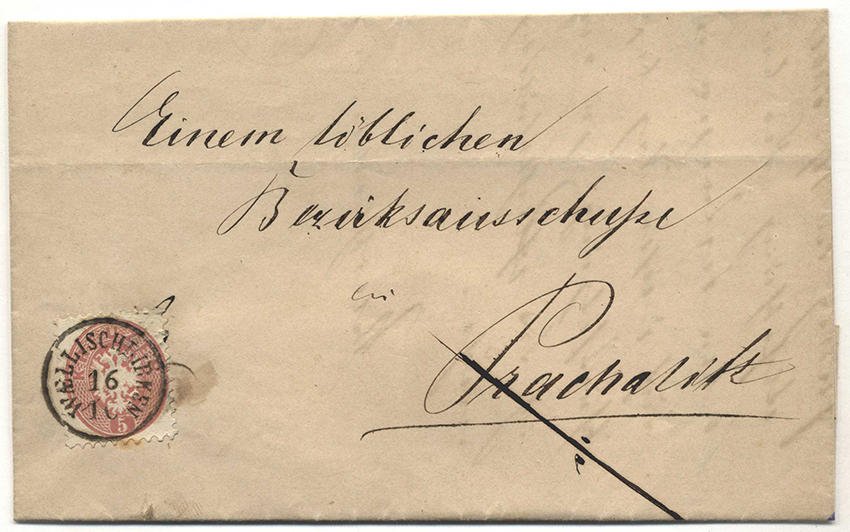 Einem löblichen
Bezirksausschuße
in
Prachatitz
WÆLLISCHBIRKEN
16
10
5